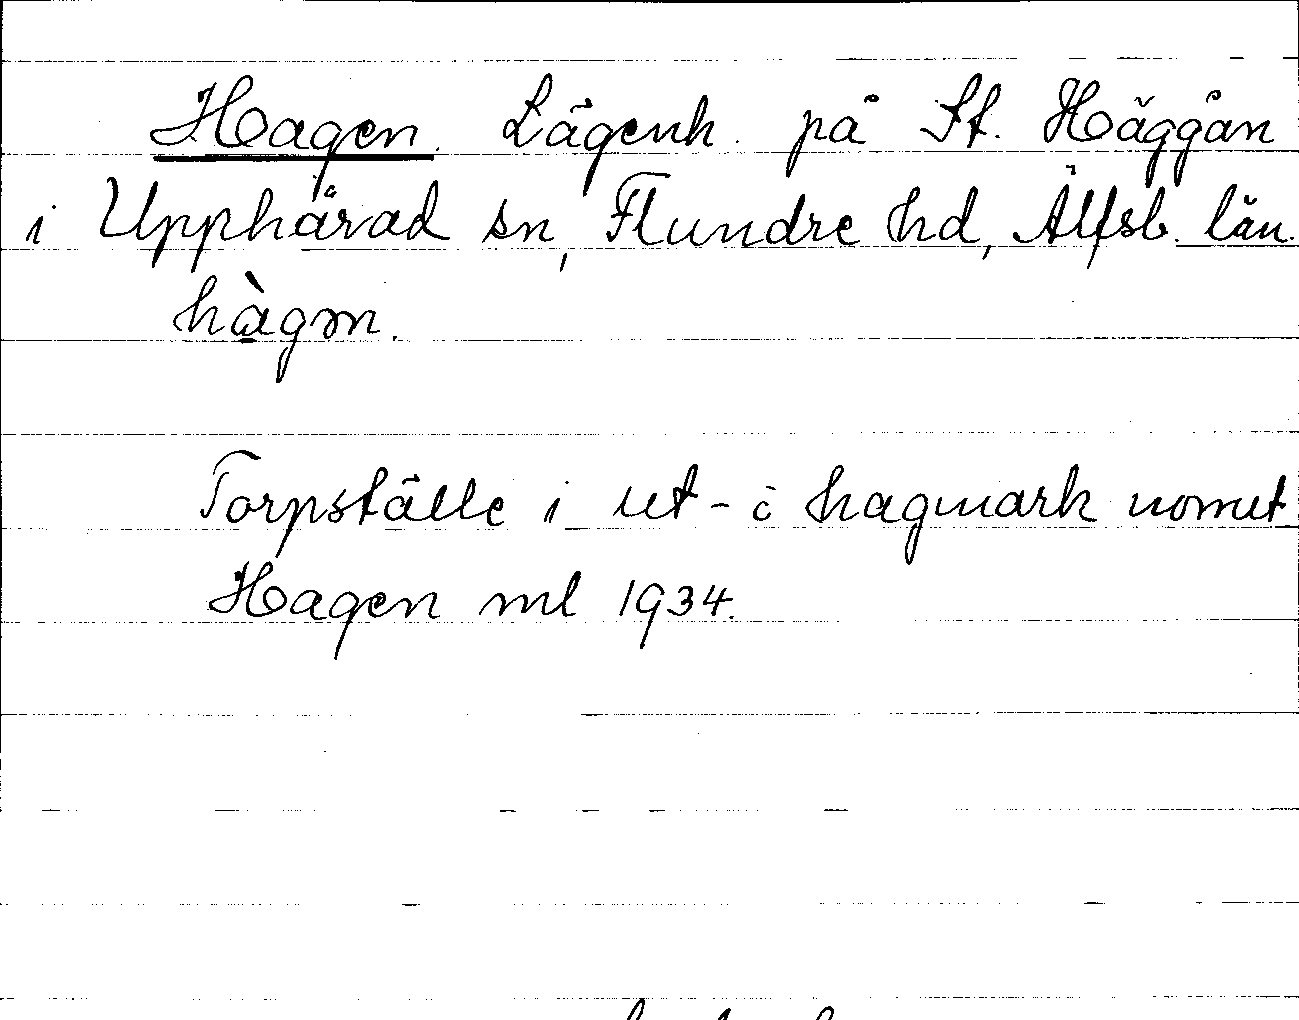 Hagen. Lägenh. på St. Häggån
i Upphärad sn, Flundre hd, Älfsb. län.
hàgɷn.
Torpställe i ut- o hagmark
Hagen ml 1934.